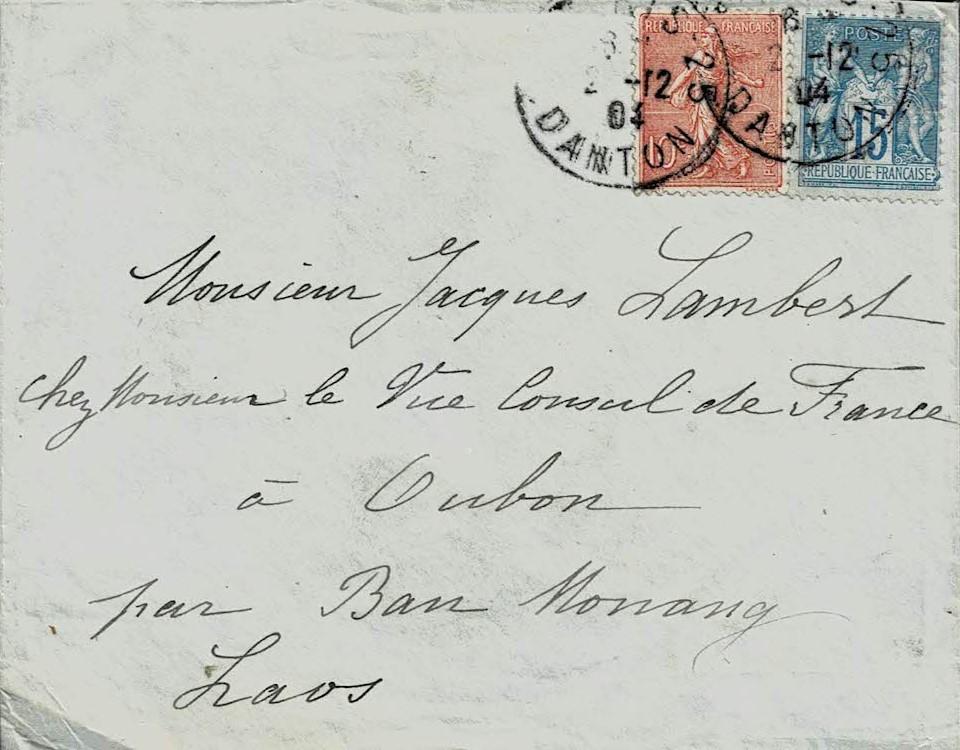 REPUBLIQUE FRANÇAISE
POSTE
15
REPUBLIQUE FRANÇAISE
25 -12
04
DANTON
-12
04
DANTON
Monsieur Jacques Lambert
chez Monsieur le Vice Consul de France
à Oubon
par Ban Mouang
Laos